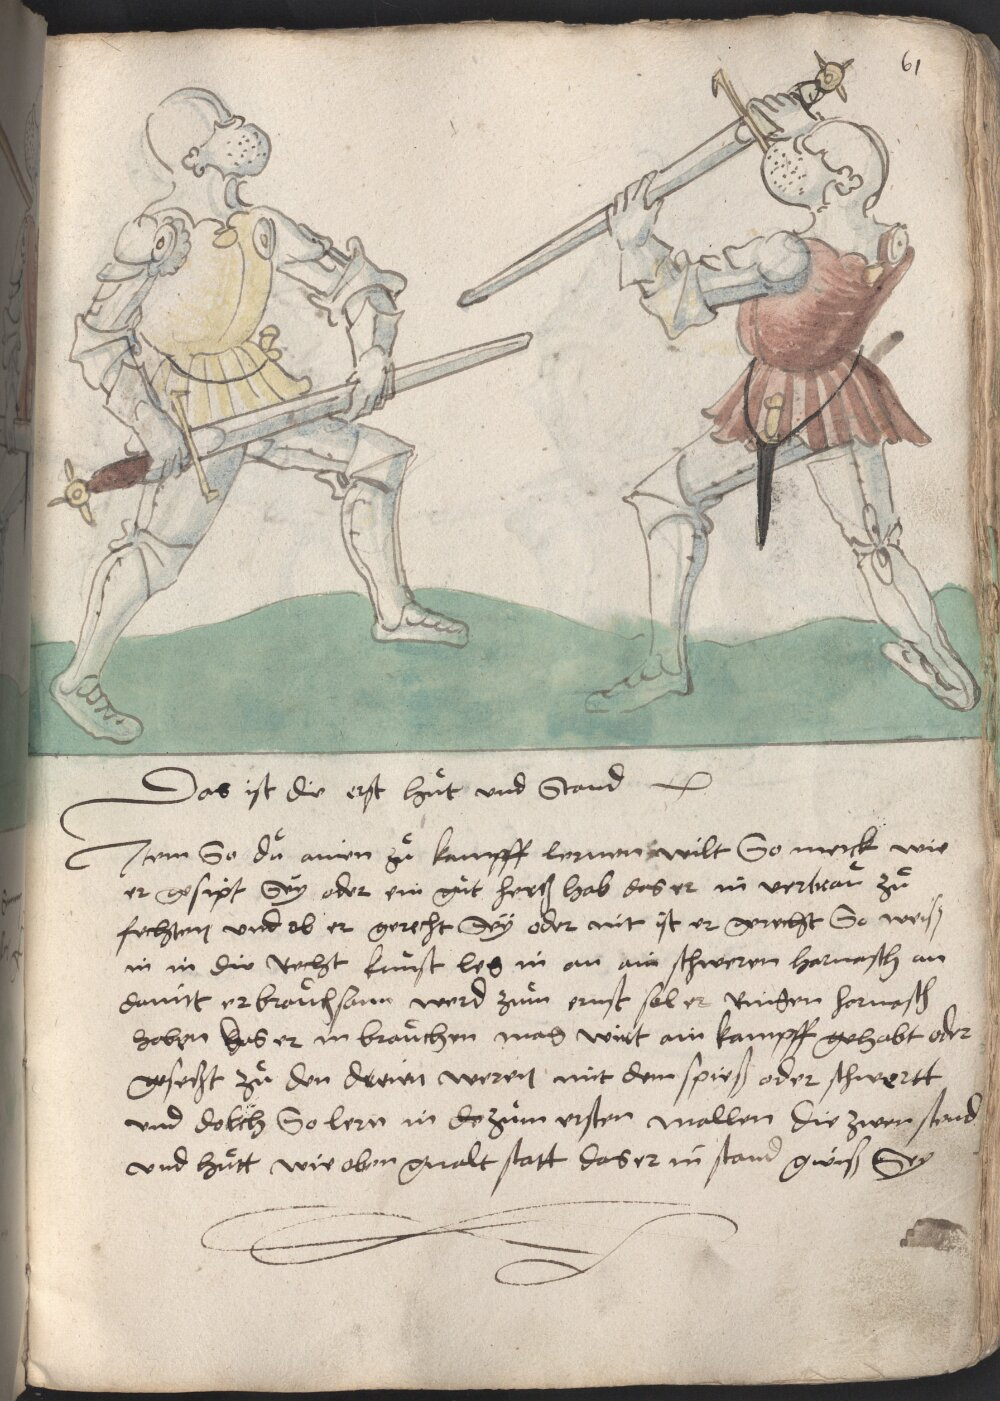 61
Das ist die erst hůt und Stand
Item So dů ainen zů kampff lernen wilt So merck wie
er gesipt Seÿ oder ein gůt herß hab das er in vertrau zů
fechten und ob er gerecht Seÿ oder nit ist er gerecht So weiß
in in die Recht kunst leg in an ain schweren harnasch an
damit er brauchsam werd zum ernst sol er Ringen harnasch
haben das er in brauchen mag wirt ain kampff gehabt oder
gesecßt zů den dreien weren mit dem spieß oder schwertt
und dolch So lern in do zům ersten mallen die zwen stend
und hůtt wie oben gmalt statt das er in stand gwiß Seÿ